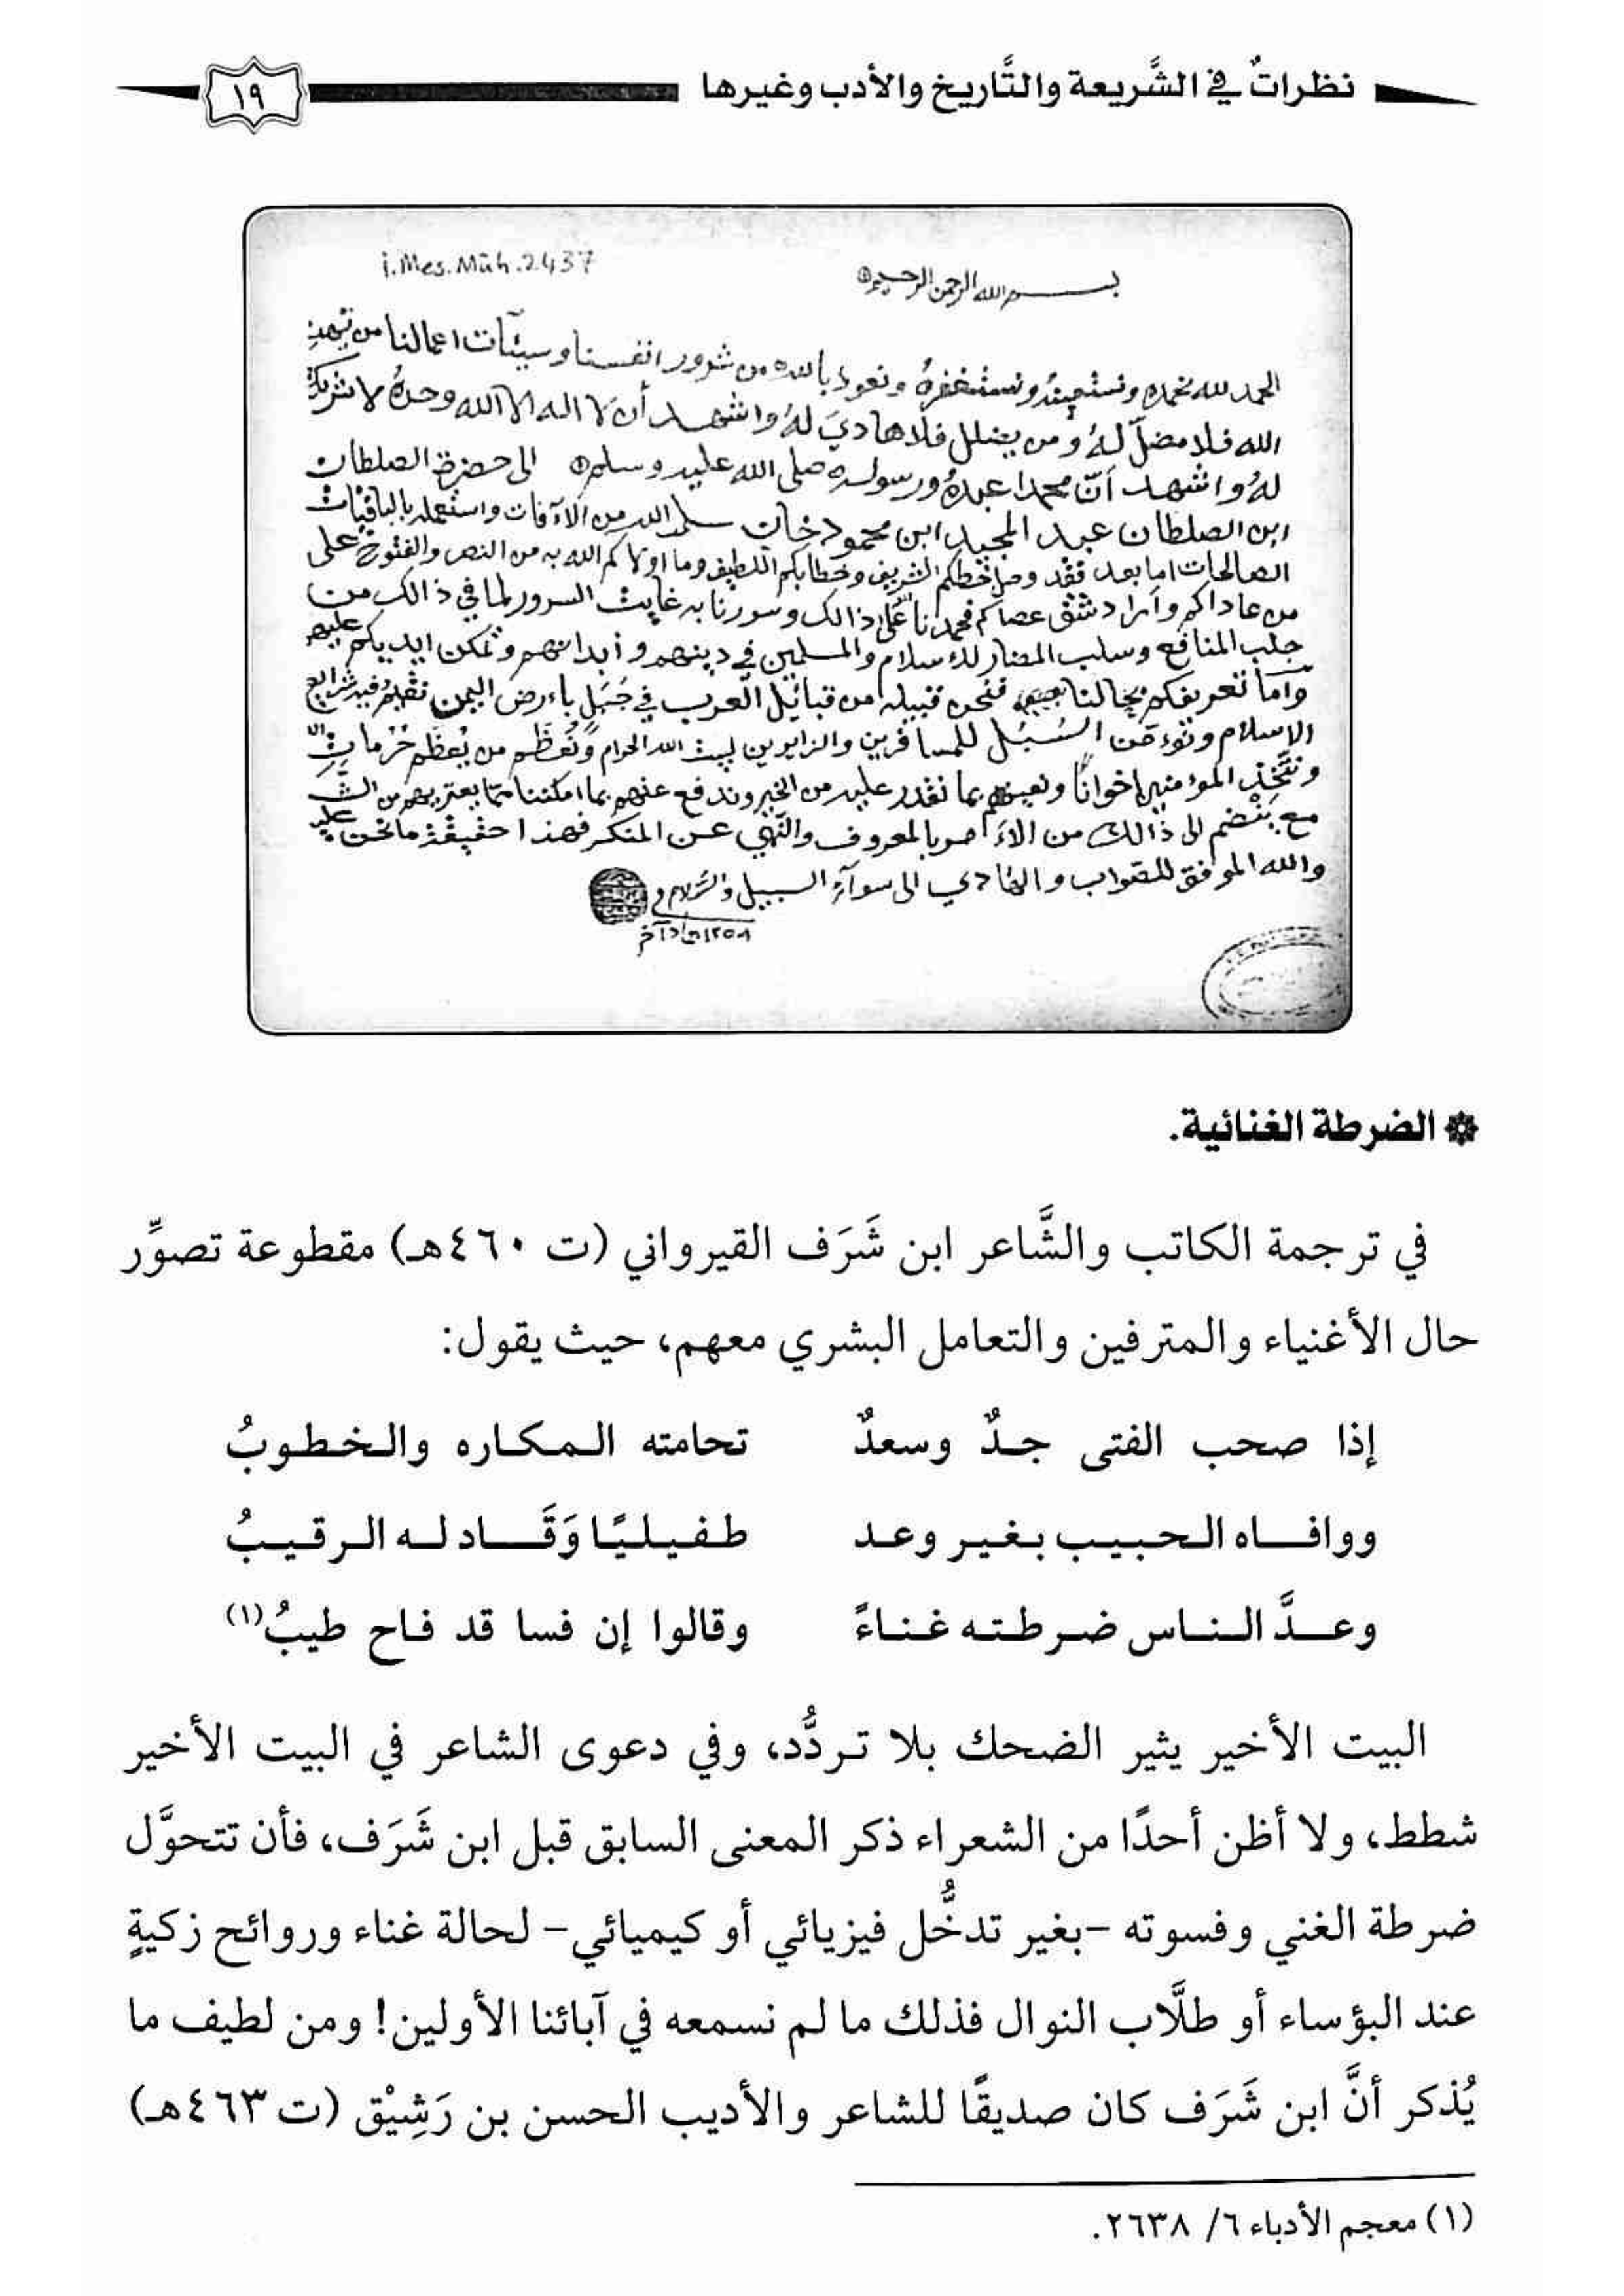 نظراتٌ في الشَّريعة والتَّاريخ والأدب وغيرها
١٩
i.Mes.Müh.2437
بسم الله الرحمن الرحيم
الحمد لله نحمده ونستعينه ونستغفرهُ ونعوذ بالله من شرور انفسنا وسيئآت اعمالنا من يهدِ
الله فلا مضلّ لهُ ومن يضلل فلا هاديَ لهُ واشهد أن لا اله الا الله وحدهُ لا شريك
لهُ واشهد أنّ محمدا عبدهُ ورسوله صلى الله عليه وسلم الى حضرة الصلطان
ابن الصلطان عبد المجيد ابن محمود خان سلمه الله من الآفات واستعمله بالباقيات
الصالحات اما بعد فقد وصل خطكم الشريف وخطابكم اللطيف وما اولاكم الله به من النصر والفتوح على
من عاداكم وأراد شق عصاكم فحمدنا الله على ذالك وسررنا به غايت السرور لما في ذالك من
جلب المنافع وسلب المضار للاسلام والمسلمين في دينهم وأبدانهم وتمكن ايديكم عليهم
وأما تعريفكم بحالنا فنحن قبيله من قبائل العرب في جَبَل بأرض اليمن نقيمُ فيه شرايع
الاسلام ونؤمّن السُبُل للمسافرين والزايرين لبيت الله الحرام ونُعَظّم من يُعظّم حُرُمات الله
ونتّخِذ المؤمنين اخوانًا ونعينهم بما نقدر عليه من الخير وندفع عنهم بما امكننا ممّا يعتريهم من
مع ينضم الى ذالك من الأمر بالمعروف والنّهي عن المنكر فهذا حقيقة ما نحن عليه
والله الموفق للصواب والهادي الى سوآء السبيل والسّلام
١٢٥٨
❋ الضرطة الغنائية.
في ترجمة الكاتب والشَّاعر ابن شَرَف القيرواني (ت ٤٦٠هـ) مقطوعة تصوِّر
حال الأغنياء والمترفين والتعامل البشري معهم، حيث يقول:
إذا صحب الفتى جدٌ وسعدٌ تحامته المكاره والخطوبُ
ووافاه الحبيب بغير وعد طفيليًا وَقَاد له الرقيبُ
وعدَّ الناس ضرطته غناءً وقالوا إن فسا قد فاح طيبُ(١)
البيت الأخير يثير الضحك بلا تردُّد، وفي دعوى الشاعر في البيت الأخير
شطط، ولا أظن أحدًا من الشعراء ذكر المعنى السابق قبل ابن شَرَف، فأن تتحوَّل
ضرطة الغني وفسوته -بغير تدخُّل فيزيائي أو كيميائي- لحالة غناء وروائح زكيةٍ
عند البؤساء أو طلَّاب النوال فذلك ما لم نسمعه في آبائنا الأولين! ومن لطيف ما
يُذكر أنَّ ابن شَرَف كان صديقًا للشاعر والأديب الحسن بن رَشِيْق (ت ٤٦٣هـ)
(١) معجم الأدباء ٦/ ٢٦٣٨.